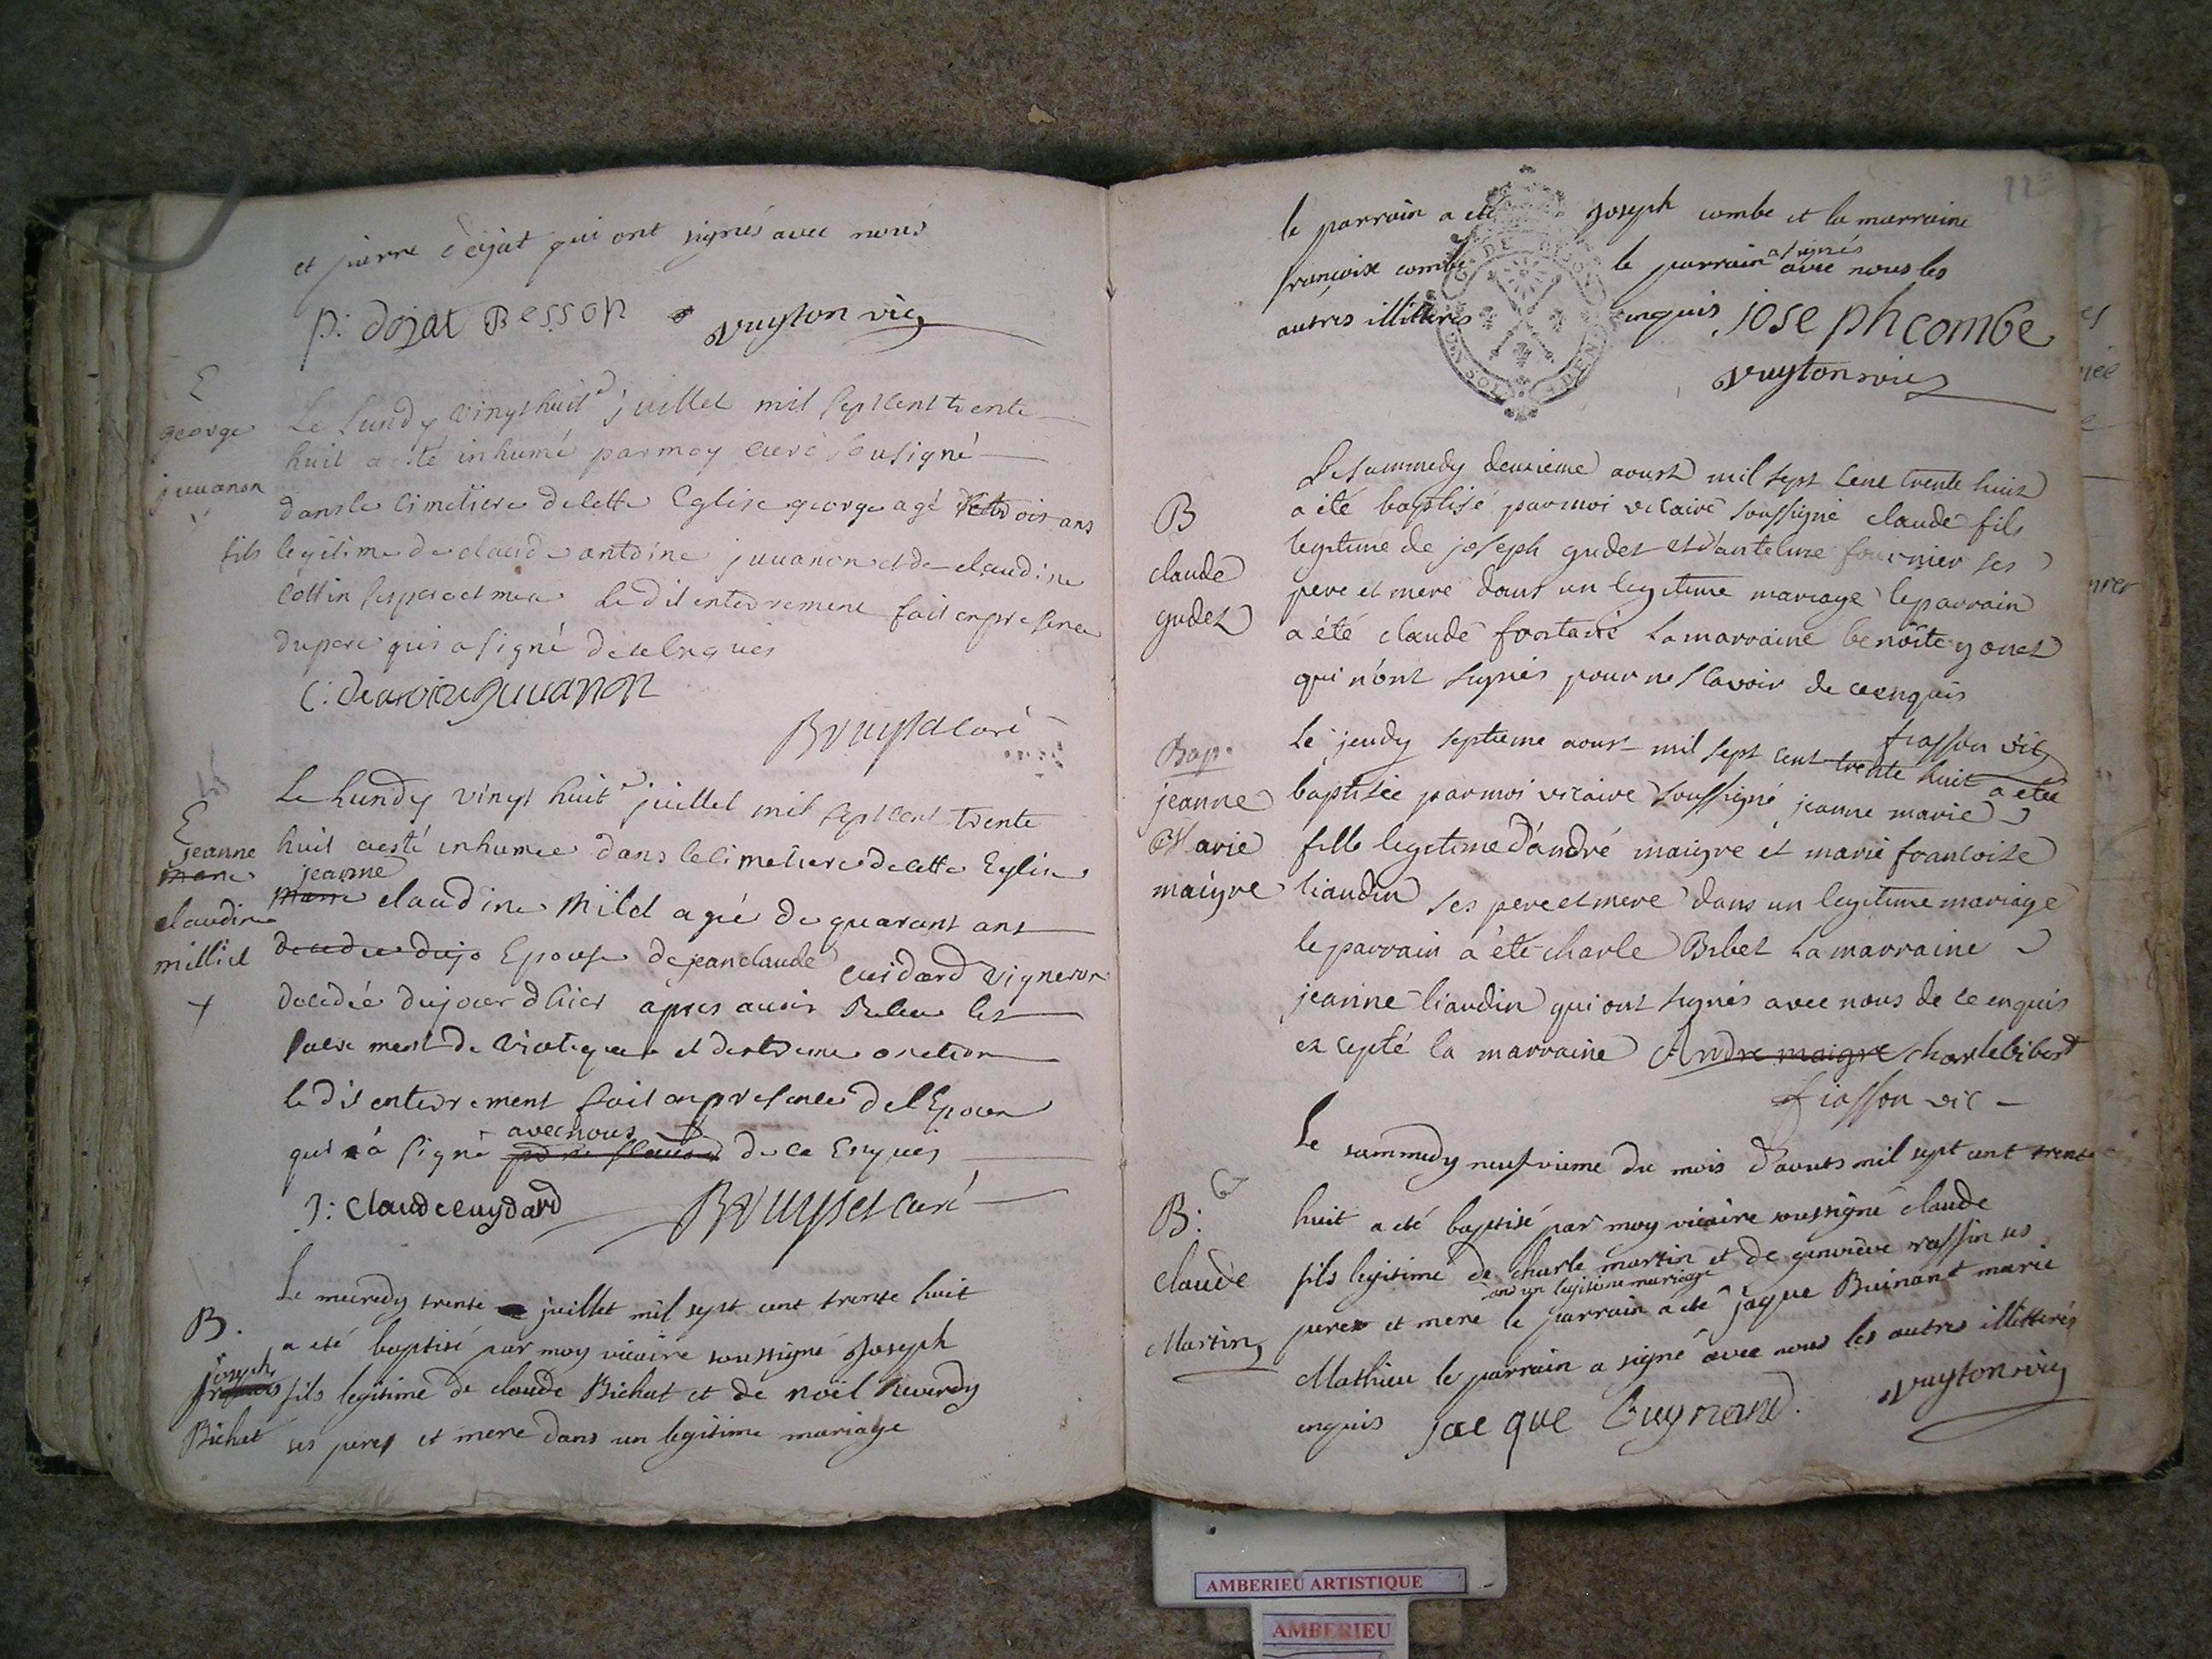 et pierre dejat qui ont signés avec nous
p: dojat Besson vuyton vic
E
george
juuanon
Le Lundy vingt huit juillet mil sept cent trente
huit a esté inhumé par moy curé sousigné
dans le cimetiere de cette Eglise george agé de trois ans
fils legitime de claude antoine juuanon et de claudine
cottin ses pere et mere le dit enterrement fait en presence
du pere qui a signé de ce enquis
juuanon
Bruyset curé
E
jeanne
marie
claudine
milliet
Le Lundy vingt huit juillet mil sept cent trente
huit a esté inhumée dans le cimetiere de cette Eglise
jeanne
marie claudine Milet agé de quarant ans
Epouse de jean claude cuidard vigneron
decedée du jour d'hier apres auoir Receu les
sacrement de viatique et d'extreme onction
le dit enterrement fait en presence de l'Epoux
avec nous
qui a signé de ce Enquis
J: claude cuydard Bruyset curé
B.
joseph
francois
Bichat
Le mecredy trente juillet mil sept cent trente huit
a eté baptisé par moy vicaire soussigné Joseph
fils legitime de claude Bichat et de noël neverdy
ses peres et mere dans un legitime mariage
le parrain a eté Joseph combe et la marraine
françoise combe le parrain a signés avec nous les
autres illitterés enquis joseph combe
vuyton vic
B
claude
gudet
Le sammedy deuxieme aoust mil sept cent trente huit
a été baptisé par moi vicaire soussigné claude fils
legitime de joseph gudet et d'antelme fournier ses
pere et mere dans un legitime mariage le parrain
a été claude fontaine la marraine benoite yonet
qui n'ont signés pour ne sçavoir de ce enquis
fiasson vic
Bap.
jeanne
Marie
maigre
Le jeudy septieme aoust mil sept cent trente huit a eté
baptisée par moi vicaire soussigné jeanne marie
fille legitime d'andré maigre et marie francoise
liaudin ses pere et mere dans un legitime mariage
le parrain a été charle Bibet la marraine
jeanne liaudin qui ont signés avec nous de ce enquis
excepté la marraine Andre maigre charle bibet
fiasson vic
B:
claude
Martin
Le sammedy neufvieme du mois d'aouts mil sept cent trente
huit a eté baptisé par moy vicaire soussigné claude
fils legitime de charle martin et de genevieve rassin ses
dans un legitime mariage
peres et mere le parrain a eté jaque Buinant marie
Mathieu le parrain a signé avec nous les autres illitterés
enquis jacque Buynand. vuyton vic
AMBERIEU ARTISTIQUE
AMBERIEU